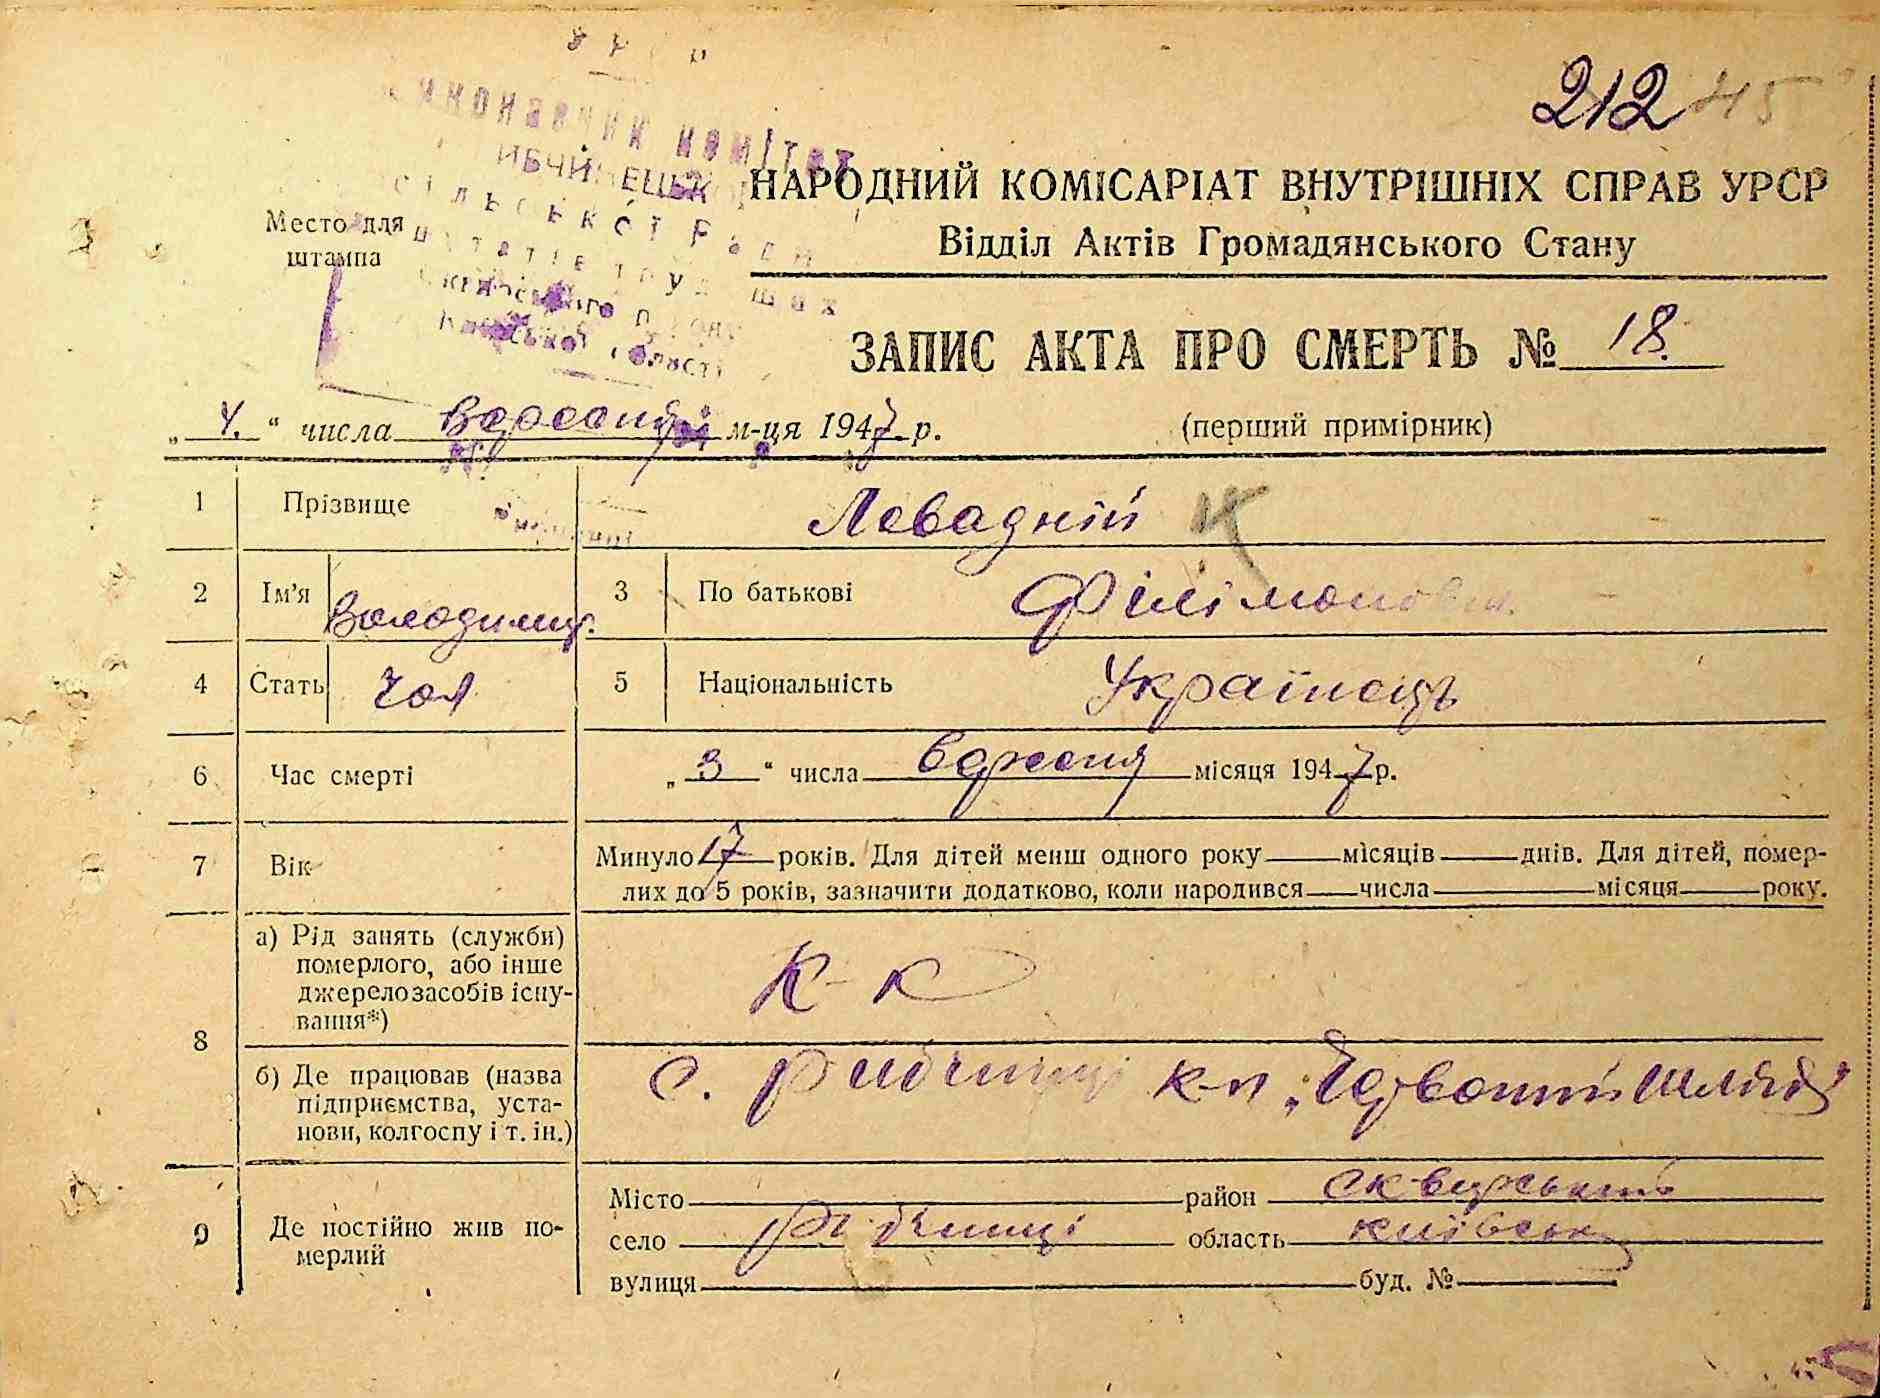 212 45
Виконавчий комітет
НАРОДНИЙ КОМІСАРІАТ ВНУТРІШНІХ СПРАВ УРСР
Відділ Актів Громадянського Стану
Место для
штампа
сільської Ради
депутатів трудящих
Київської області
ЗАПИС АКТА ПРО СМЕРТЬ № 18.
„ 4. “ числа вересня м-ця 1947 р. (перший примірник)
1 Прізвище Левадній К
2 Ім’я Володимир. 3 По батькові Філімонович
4 Стать чол 5 Національність Українець
6 Час смерті „ 3 “ числа вересня місяця 1947 р.
7 Вік Минуло 17 років. Для дітей менш одного року місяців днів. Для дітей, помер-
лих до 5 років, зазначити додатково, коли народився числа місяця року.
8 а) Рід занять (служби)
померлого, або інше
джерело засобів існу-
вання*)
К-к
б) Де працював (назва
підприємства, уста-
нови, колгоспу і т. ін.)
с. Рибчинці к-п „Червоний шлях“
9 Де постійно жив по-
мерлий
Місто район сквирський
село Рибчинці область київськ
вулиця буд. №